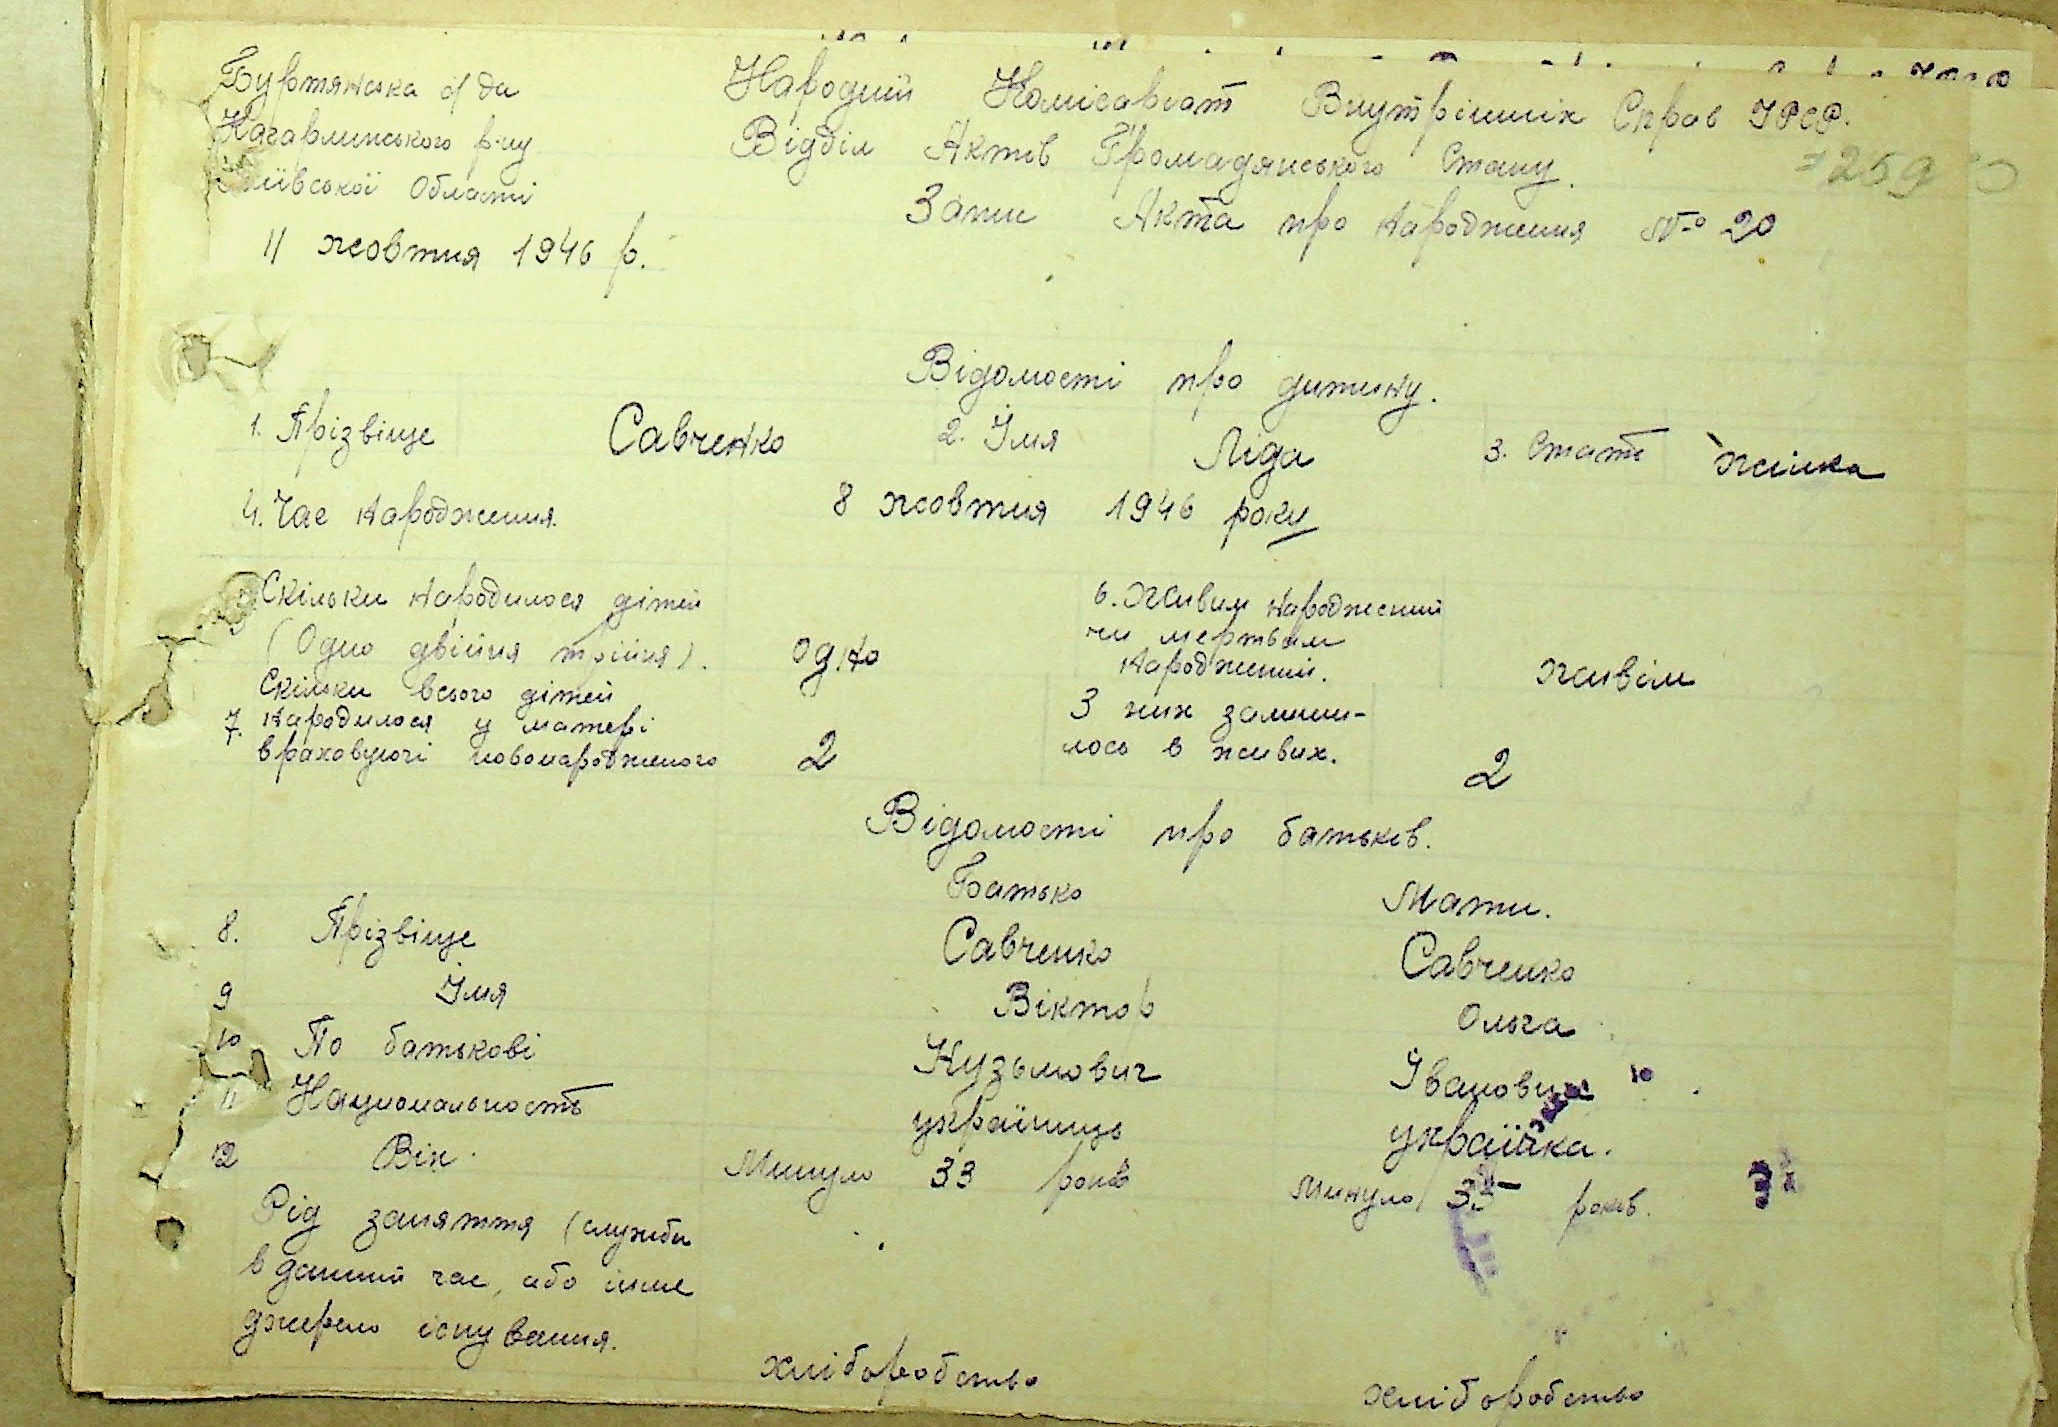 Буртянська с/да
Кагарлинського р-ну
Київської Области
11 жовтня 1946 р.
Народний Комісаріат Внутрішніх Справ УРСР.
Відділ Актів Громадянського Стану.
259
Запис Акта про народження № 20
Відомості про дитину.
1. Прізвіще Савченко 2. Імя Ліда 3. Стать жінка
4. Час народження. 8 жовтня 1946 року
Скільки народилося дітей
(Одно двійня трійня). одно
6. Живим народжений
чи мертвим
народжений. живім
Скільки всього дітей
7. народилося у матері
враховуючі новонародженого 2
З них залиши-
лось в живих. 2
Відомості про батьків.
Батько Мати.
8. Прізвіще Савченко Савченко
9 Імя Віктор Ольга
10 По батькові Кузьмович Івановна
11 Национальность українець українка.
12 Вік. Минуло 33 років Минуло 35 років.
Рід заняття (служби
в данний час, або інше
джерело існування.
хліборобство хліборобство